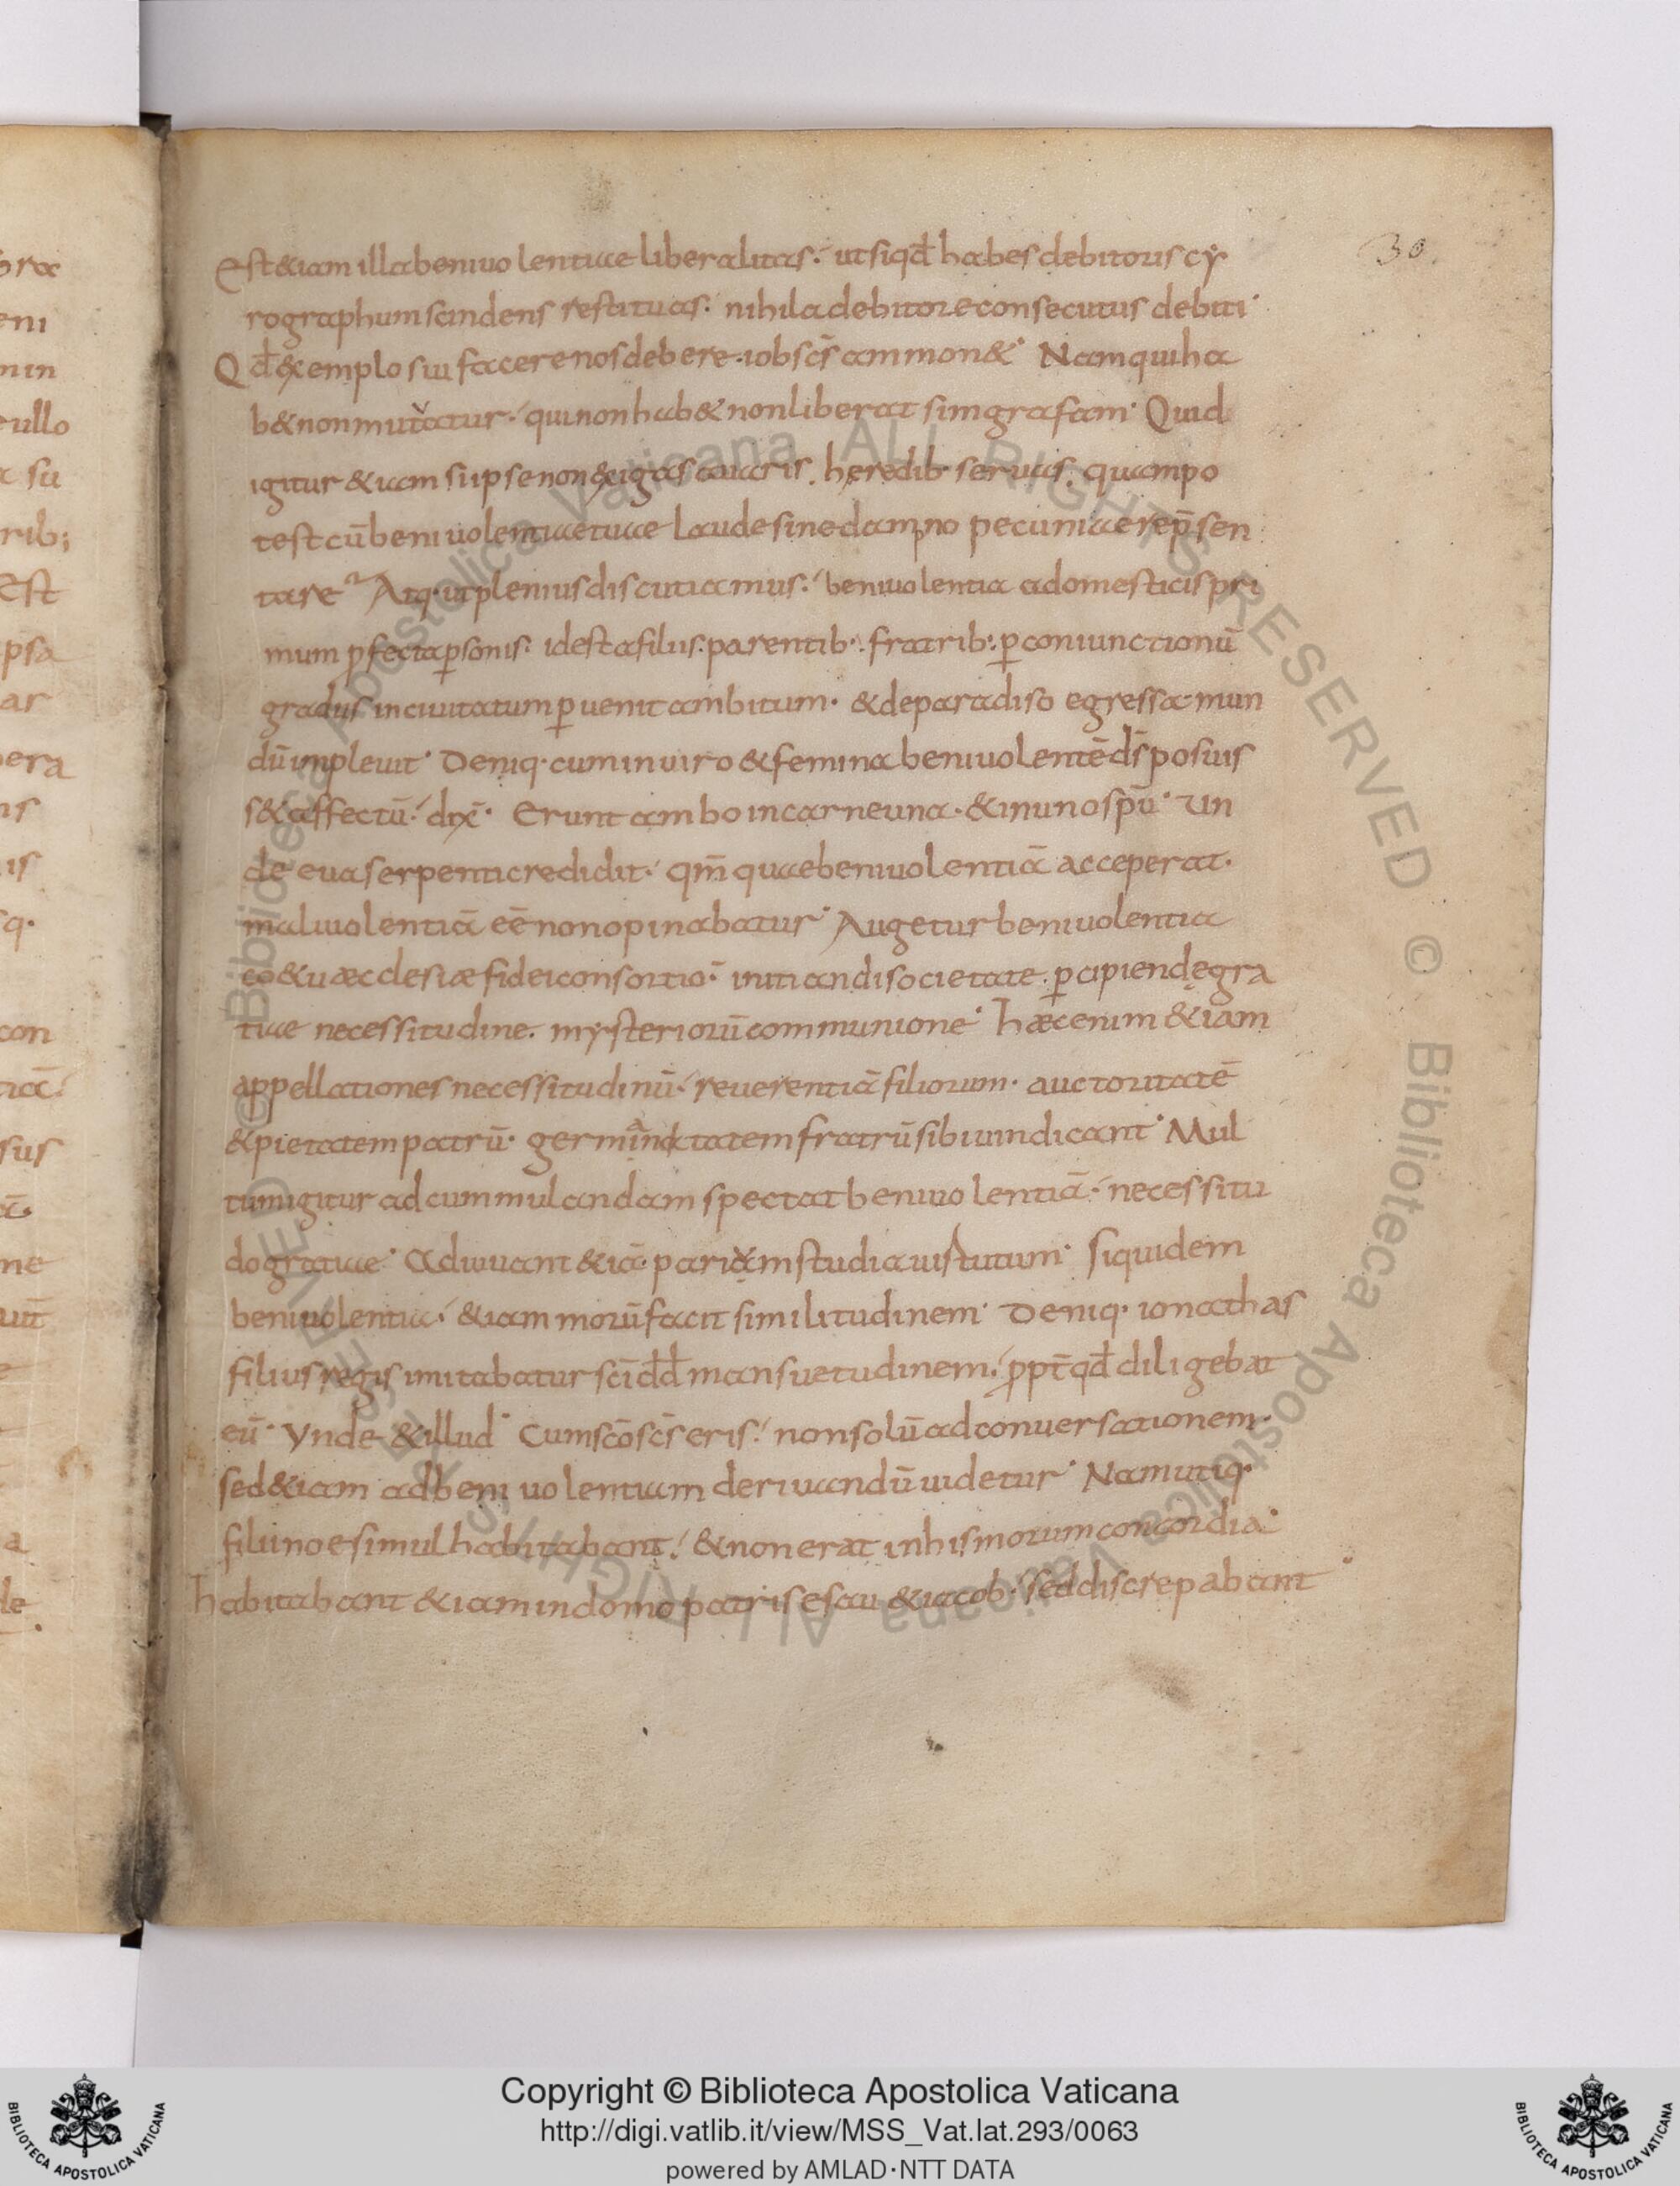 30.
Est&iam illa beniuolentiae liberalitas. ut si qd̄ habes debitoris cy
rographum scindens restituas. nihil a debitore consecutus debiti
Qd̄ exemplo sui facere nos debere. iob scs̄ ammon& Nam qui ha
b& non mutuatur. qui non hab& non liberat simgrafam. Quid
igitur &iam si ipse non exigas auaris. heredib. seruas. quam po
test cū beniuolentiae tuae laude sine dampno pecuniae rep̄sen
tare Atq. ut plenius discutiamus. beniuolentia a domesticis pri
mum ꝓfecta ꝑsonis. id est a filiis. parentib. fratrib. ꝑ coniunctionū
gradus in ciuitatum ꝑuenit ambitum. & de paradiso egressa mun
dū impleuit Deniq. cum in uiro & femina beniuolentē ds̄ posuis
s& affectū. dix̄. Erunt ambo in carne una. & in uno spū Un
de eua serpenti credidit. qm̄ quae beniuolentiā acceperat.
maliuolentiā eē non opinabatur Augetur beniuolentia
co&u æcclesiæ fidei consortio. initiandi societate. ꝑcipiendę gra
tiae necessitudine. mysteriorū communione hæc enim &iam
appellationes necessitudinū. reuerentiā filiorum. auctoritatē
& pietatem patrū. germanitatem fratrū sibi uindicant Mul
tum igitur ad cummulandam spectat beniuolentiā. necessitu
do gratiae Adiuuant &iā parium studia uirtutum siquidem
beniuolentia. &iam morū facit similitudinem Deniq. ionathas
filius regis imitabatur scī dd̄ mansuetudinem. ꝓpt̄ qd̄ diligebat
eū Unde & illud Cum scō scs̄ eris. non solū ad conuersationem.
sed &iam ad beniuolentiam deriuandū uidetur Nam utiq.
filii noe simul habitabant. & non erat in his morum concordia
habitabant &iam in domo patris esau & iacob. sed discrepabant
Copyright © Biblioteca Apostolica Vaticana
http://digi.vatlib.it/view/MSS_Vat.lat.293/0063
powered by AMLAD·NTT DATA